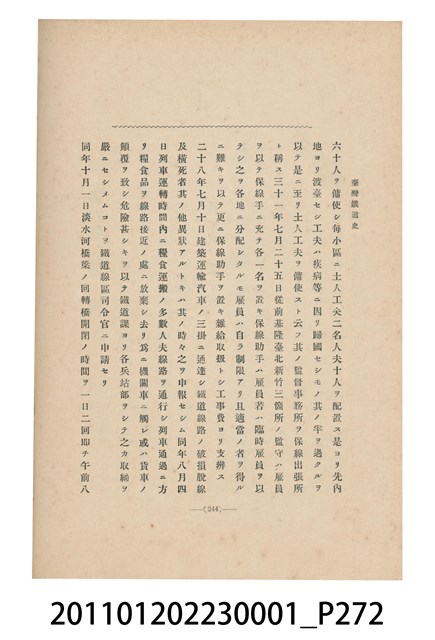 臺灣鐵道史
六十人ヲ傭使シ每小區ニ土人工夫二名人夫十人ヲ配置ス是ヨリ先內
地ヨリ渡臺セシ工夫ハ疾病等ニ因リ歸國セシモノ其ノ半ヲ過クルヲ
以テ是ニ至リ土人工夫ヲ傭使スト云フ其ノ監督事務所ヲ保線出張所
ト稱ス三十一年七月二十五日從前基隆臺北新竹三箇所ノ監守ハ雇員
ヲ以テ保線手ニ充テ各一名ヲ置キ保線助手ハ雇員若ハ臨時雇員ヲ以
テシ之ヲ各地ニ分配シタルモ雇員ハ自ラ制限アリ且適當ノ者ヲ得ル
ニ難キヲ以テ更ニ保線助手ヲ置キ雜給取扱トシ工事費ヨリ支辨ス
二十八年七月十日建築運輸汽車ノ三掛ニ通達シ鐵道線路ノ破損脫線
及橫死者其ノ他異狀アルトキハ其ノ時々之ヲ申報セシム同年八月四
日列車運轉時間內ニ糧食運搬ノ多數人夫線路ヲ通行シ列車通過ニ方
リ糧食品ヲ線路接近ノ處ニ放棄シ去リ爲ニ機關車ニ觸レ或ハ貨車ノ
顚覆ヲ致シ危險甚シキヲ以テ鐵道課ヨリ各兵站部ヲシテ之カ取締ヲ
嚴ニセシメムコトヲ鐵道線區司令官ニ申請セリ
同年十月一日淡水河橋梁ノ回轉橋開閉ノ時間ヲ一日二回卽チ午前八
(244)
201101202230001_P272